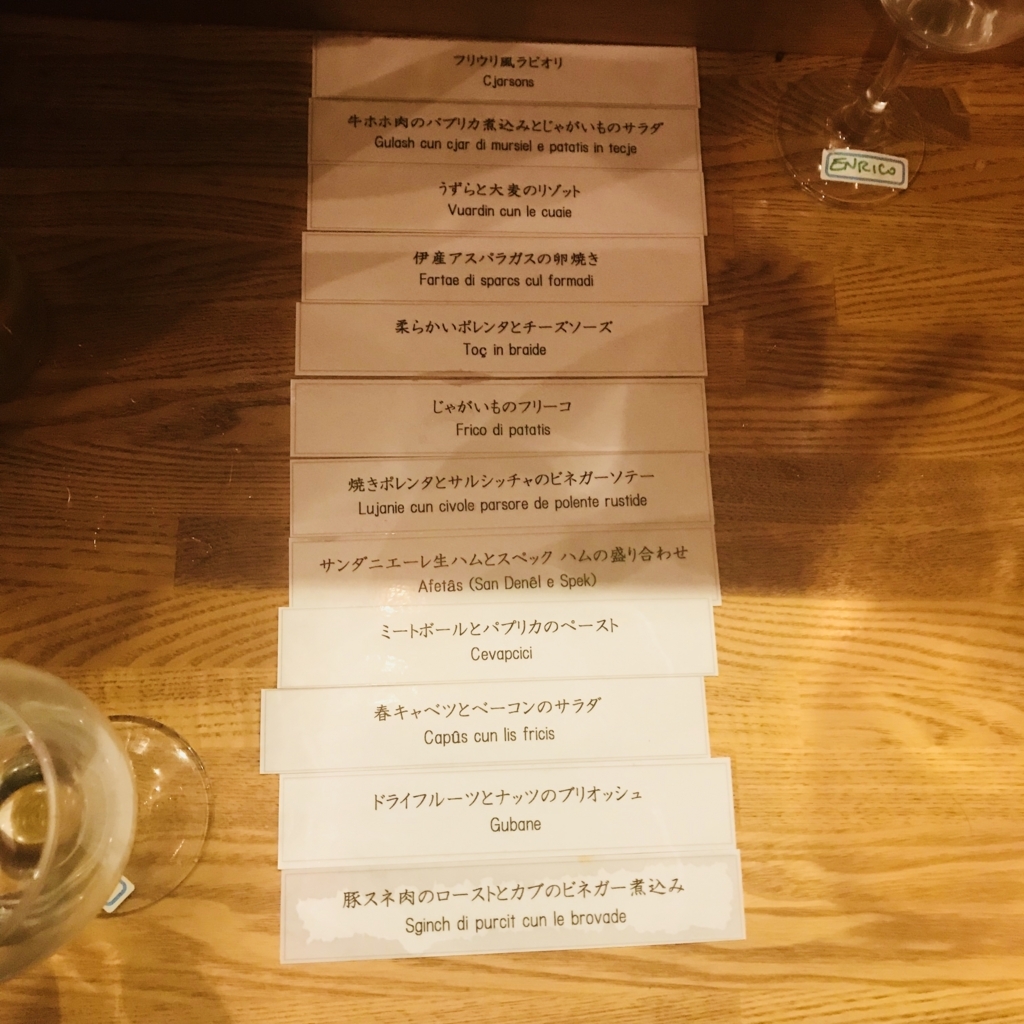 フリウリ風ラビオリ
Cjarsons
牛ホホ肉のパプリカ煮込みとじゃがいものサラダ
Gulash cun cjar di mursiel e patatis in tecje
うずらと大麦のリゾット
Vuardin cun le cuaie
伊産アスパラガスの卵焼き
Fartae di sparcs cul formadi
柔らかいポレンタとチーズソーズ
Toç in braide
じゃがいものフリーコ
Frico di patatis
焼きポレンタとサルシッチャのビネガーソテー
Lujanie cun civole parsore de polente rustide
サンダニエーレ生ハムとスペック ハムの盛り合わせ
Afetâs (San Denêl e Spek)
ミートボールとパプリカのペースト
Cevapcici
春キャベツとベーコンのサラダ
Capûs cun lis fricis
ドライフルーツとナッツのブリオッシュ
Gubane
豚スネ肉のローストとカブのビネガー煮込み
Sginch di purcit cun le brovade
ENRICO